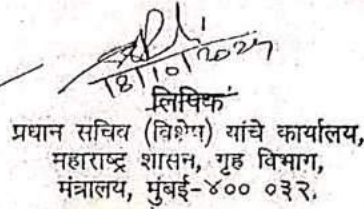 18/10/2024
लिपिक
प्रधान सचिव (विशेष) यांचे कार्यालय,
महाराष्ट्र शासन, गृह विभाग,
मंत्रालय, मुंबई-४०० ०३२.